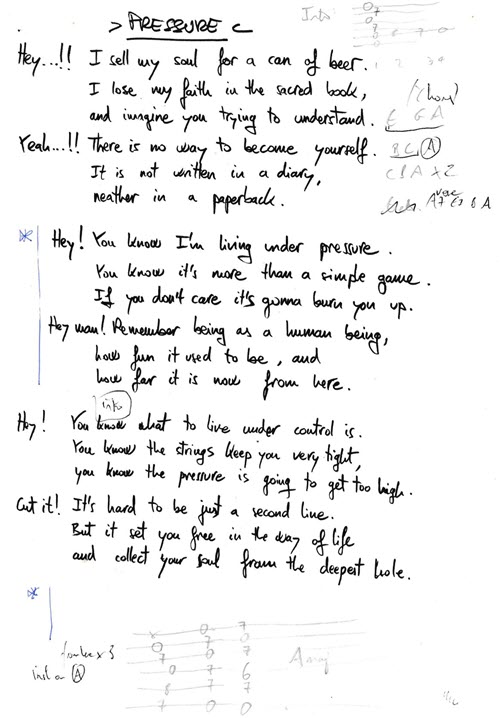 > PRESSURE <
Intro:
Hey...!! I sell my soul for a can of beer.
I lose my faith in the sacred book,
and imagine you trying to understand.
E G A
Yeah...!! There is no way to become yourself.
B C A
It is not written in a diary,
C B A x 2
neather in a paperback.
Hey! You know I'm living under pressure.
You know it's more than a simple game.
If you don't care it's gonna burn you up.
Hey man! Remember being as a human being,
how fun it used to be, and
how far it is now from here.
intro
Hey! You know what to live under control is.
You know the strings keep you very tight,
you know the pressure is going to get too high.
Cut it! It's hard to be just a second line.
But it set you free in the way of life
and collect your soul from the deepest hole.
x 0 7
0 7 0 7
0 7 6
8 7 7
7 0 0
A maj